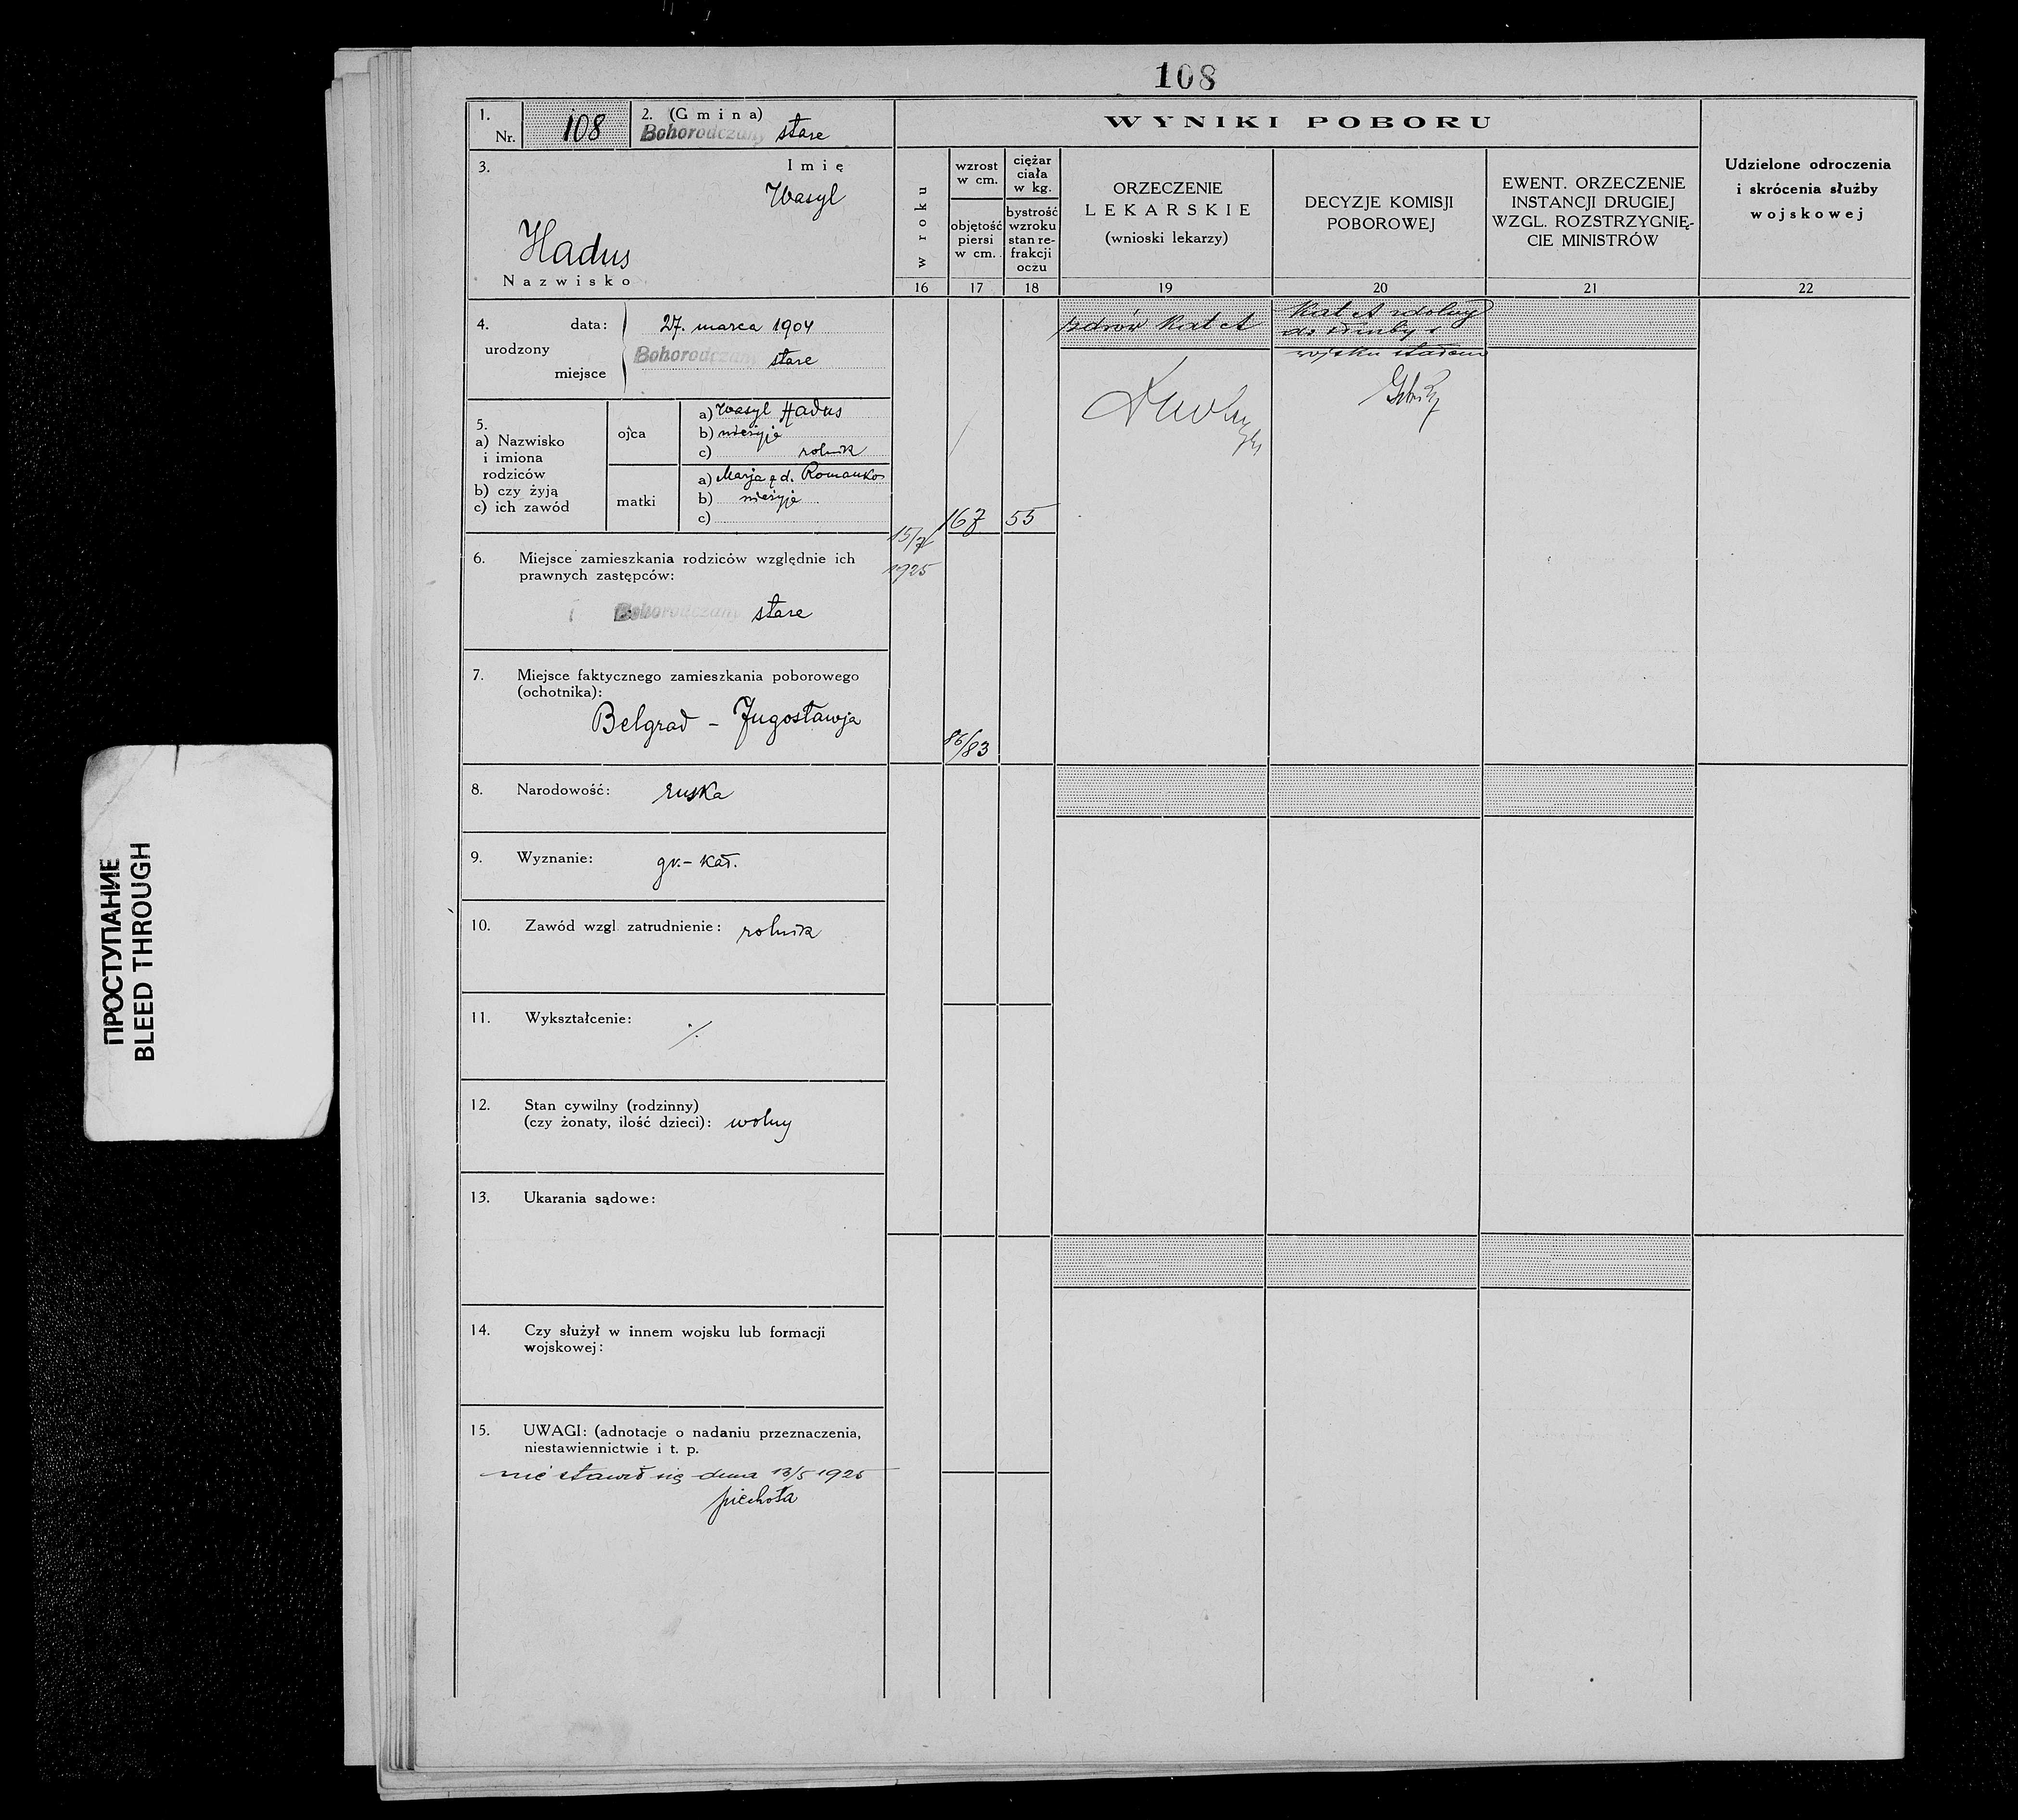 108
1.
Nr. 108
2. (Gmina)
Bohorodczany stare
3.
Imię
Wasyl
Hadus
Nazwisko
4. urodzony
data: 27. marca 1904
miejsce Bohorodczany stare
5.
a) Nazwisko
i imiona
rodziców
b) czy żyją
c) ich zawód
ojca
a) Wasyl Hadus
b) nieżyje
c) rolnik
matki
a) Marja Romanko
b) nieżyje
c)
6. Miejsce zamieszkania rodziców względnie ich
prawnych zastępców:
Bohorodczany stare
7. Miejsce faktycznego zamieszkania poborowego
(ochotnika):
Belgrad – Jugosławja
8. Narodowość: ruska
9. Wyznanie: gr.- kat.
10. Zawód wzgl. zatrudnienie: rolnik
11. Wykształcenie: ·/.
12. Stan cywilny (rodzinny)
(czy żonaty, ilość dzieci): wolny
13. Ukarania sądowe:
14. Czy służył w innem wojsku lub formacji
wojskowej:
15. UWAGI: (adnotacje o nadaniu przeznaczenia,
niestawiennictwie i t. p.
nie stawił się dnia 13/5 1925
piechota
WYNIKI POBORU
w roku
16
15/7
1925
wzrost
w cm.
objętość
piersi
w cm.
17
167
86/83
ciężar
ciała
w kg.
bystrość
wzroku
stan re-
frakcji
oczu
18
55
ORZECZENIE
LEKARSKIE
(wnioski lekarzy)
19
zdrów Kat A
DECYZJE KOMISJI
POBOROWEJ
20
Kat A zdolny
do służby w
wojsku stałem
EWENT. ORZECZENIE
INSTANCJI DRUGIEJ
WZGL. ROZSTRZYGNIĘ-
CIE MINISTRÓW
21
Udzielone odroczenia
i skrócenia służby
wojskowej
22
ПРОСТУПАНИЕ
BLEED THROUGH